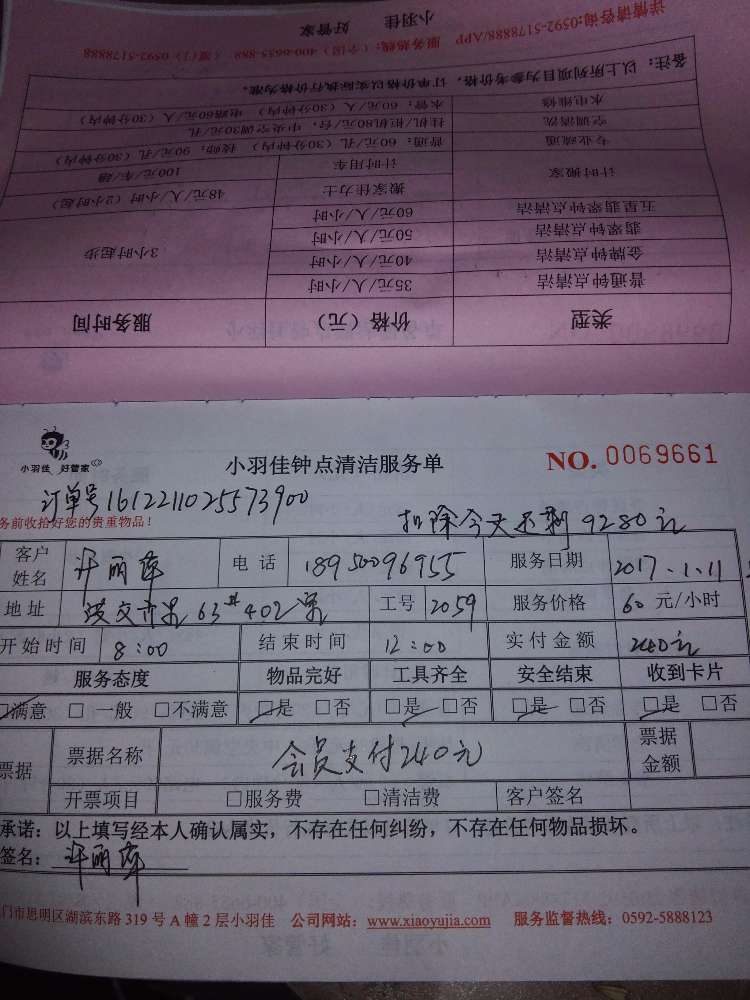 详情请咨询:0592-5178888/APP 服务热线:(全国)400-6655-889 (厦门)0592-5178888
小羽佳 好管家
备注:以上所列项目为参考价格,订单价格以实际执行价格为准。
水电维修 水管:60元/人(30分钟内) 电路60元/人(30分钟内)
空调清洗 挂机/柜机80元/台,中央空调30元/孔
专业疏通 普通:60元/孔(30分钟内) 技师:90元/孔(30分钟内)
计时搬家 计时用车 100元/车趟
搬家佳力士 48元/人/小时(2小时起)
五星翡翠钟点清洁 60元/人/小时
翡翠钟点清洁 50元/人/小时
金牌钟点清洁 40元/人/小时 3小时起步
普通钟点清洁 35元/人/小时
类型 价格(元) 服务时间
小羽佳 好管家
小羽佳钟点清洁服务单 NO. 0069661
订单号161221102557 3900
务前收拾好您的贵重物品! 扣除今天还剩9280元
客户姓名 许丽萍 电话 18950096955 服务日期 2017.1.11
地址 63# 402室 工号 2059 服务价格 60元/小时
开始时间 8:00 结束时间 12:00 实付金额 240元
服务态度 物品完好 工具齐全 安全结束 收到卡片
□满意 □一般 □不满意 □是 □否 □是 □否 □是 □否 □是 □否
票据 票据名称 会员支付240元 票据金额
开票项目 □服务费 □清洁费 客户签名
承诺:以上填写经本人确认属实,不存在任何纠纷,不存在任何物品损坏。
签名: 许丽萍
门市思明区湖滨东路319号A幢2层小羽佳 公司网站:www.xiaoyujia.com 服务监督热线:0592-5888123